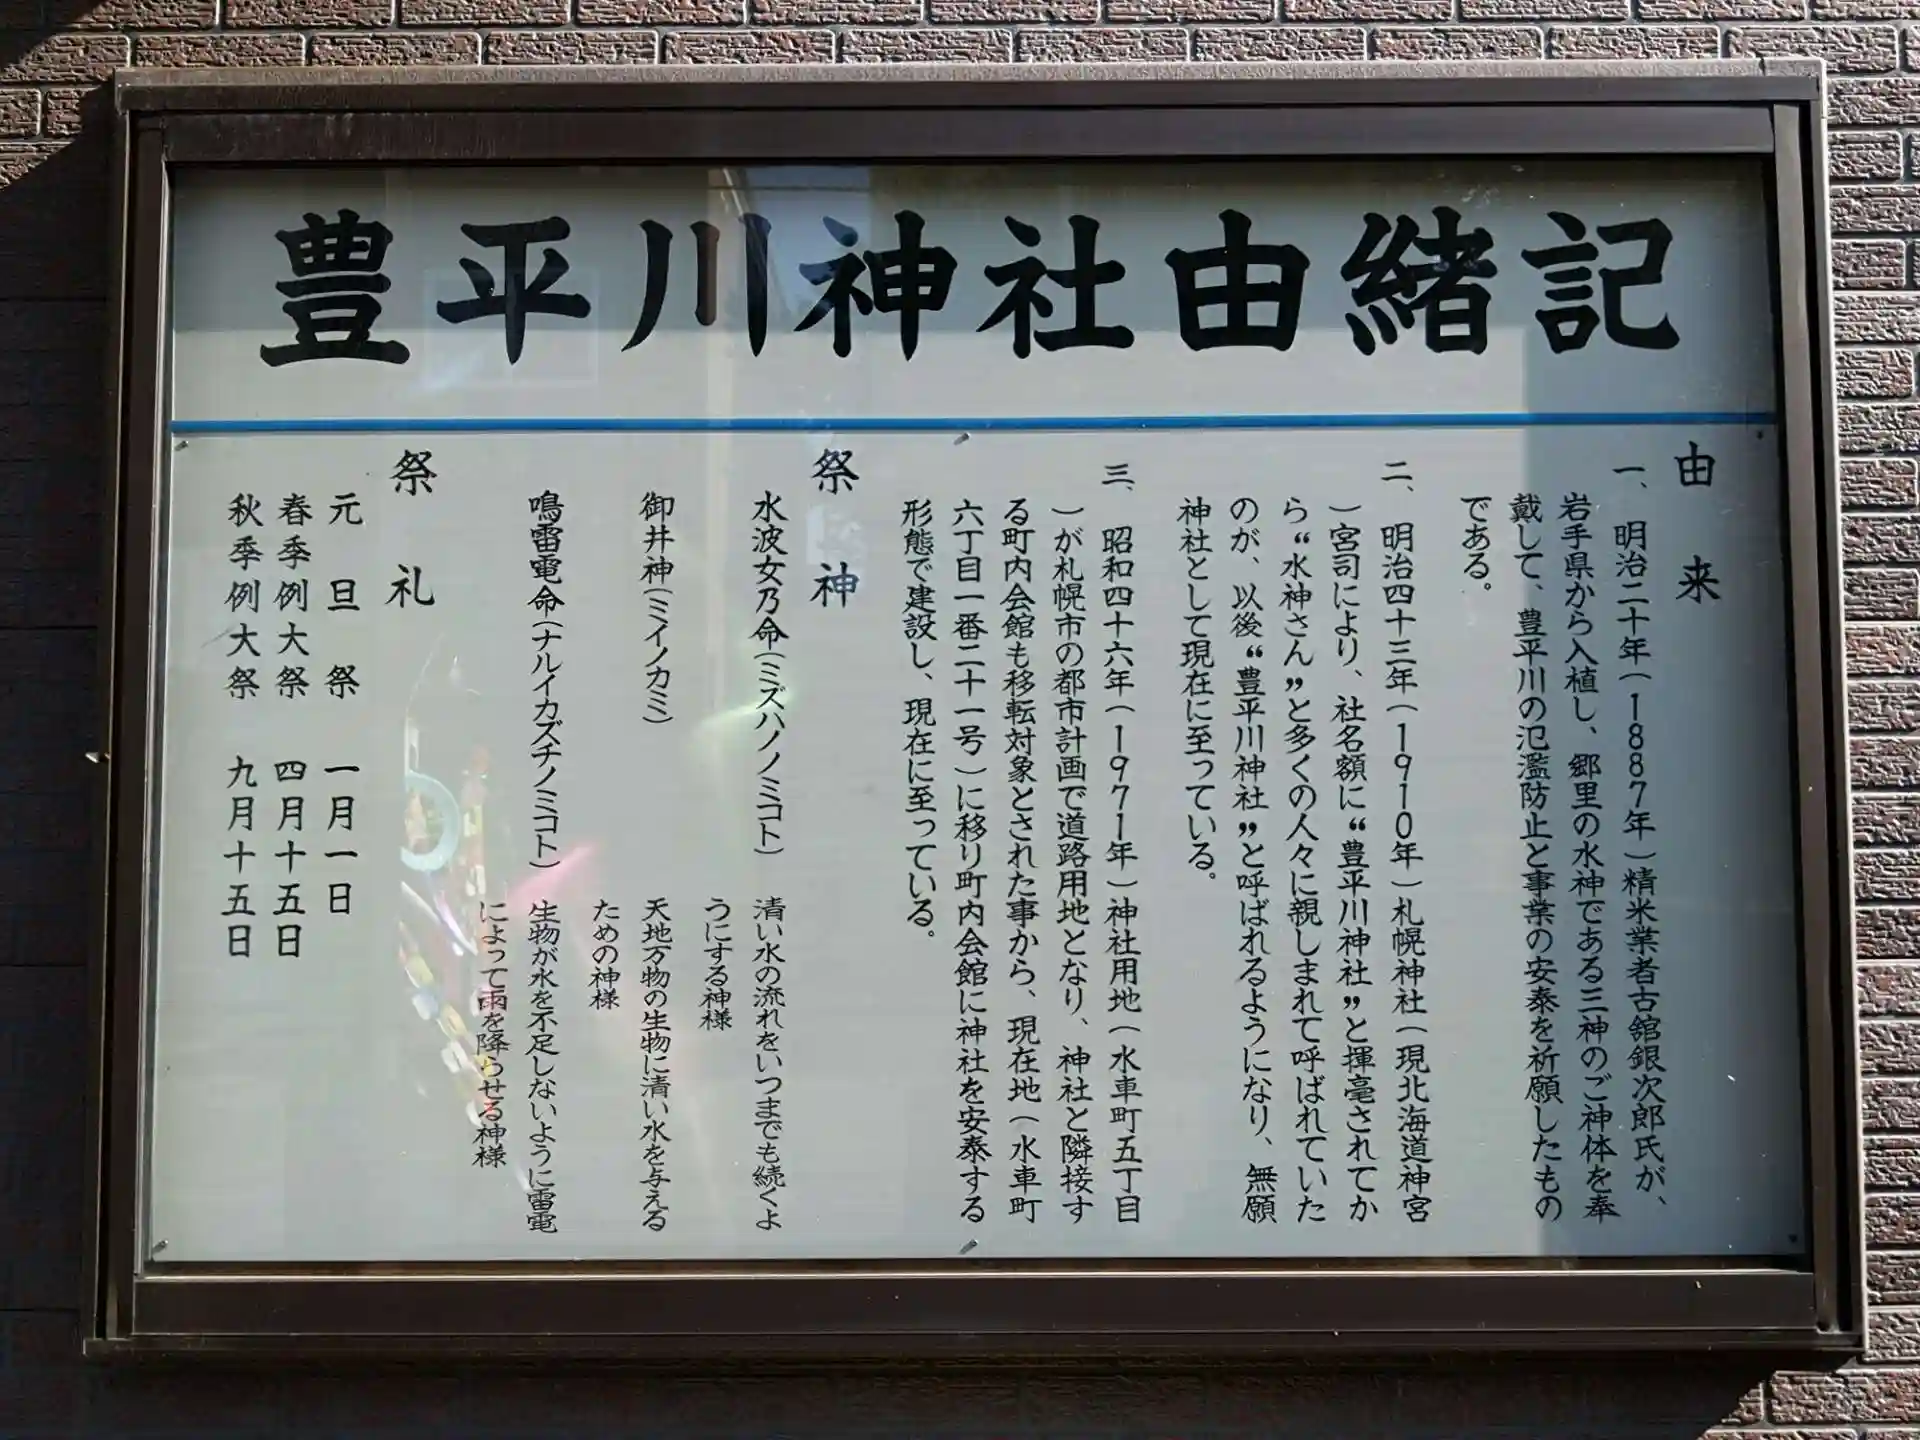 豊平川神社由緒記
由来
一、明治二十年(1887年)精米業者古舘銀次郎氏が、
岩手県から入植し、郷里の水神である三神のご神体を奉
戴して、豊平川の氾濫防止と事業の安泰を祈願したもの
である。
二、明治四十三年(1910年)札幌神社(現北海道神宮
)宮司により、社名額に“豊平川神社”と揮毫されてか
ら“水神さん”と多くの人々に親しまれて呼ばれていた
のが、以後“豊平川神社”と呼ばれるようになり、無願
神社として現在に至っている。
三、昭和四十六年(1971年)神社用地(水車町五丁目
)が札幌市の都市計画で道路用地となり、神社と隣接す
る町内会館も移転対象とされた事から、現在地(水車町
六丁目一番二十一号)に移り町内会館に神社を安泰する
形態で建設し、現在に至っている。
祭神
水波女乃命(ミズハノノミコト) 清い水の流れをいつまでも続くよ
うにする神様
御井神(ミイノカミ) 天地万物の生物に清い水を与える
ための神様
鳴雷電命(ナルイカズチノミコト) 生物が水を不足しないように雷電
によって雨を降らせる神様
祭礼
元旦祭 一月一日
春季例大祭 四月十五日
秋季例大祭 九月十五日